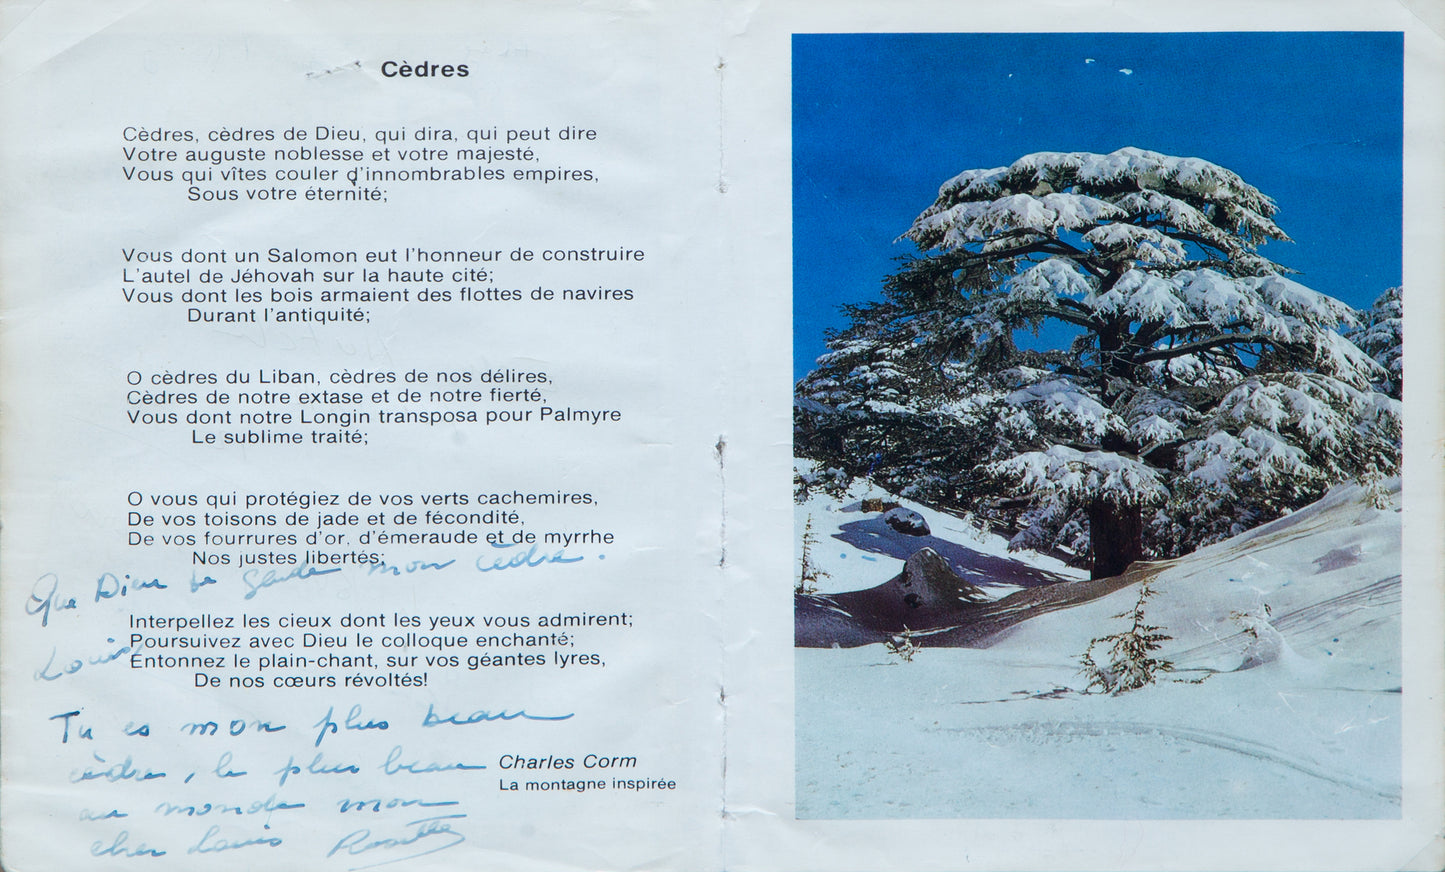 Cèdres
Cèdres, cèdres de Dieu, qui dira, qui peut dire
Votre auguste noblesse et votre majesté,
Vous qui vîtes couler d'innombrables empires,
Sous votre éternité;
Vous dont un Salomon eut l'honneur de construire
L'autel de Jéhovah sur la haute cité;
Vous dont les bois armaient des flottes de navires
Durant l'antiquité;
O cèdres du Liban, cèdres de nos délires,
Cèdres de notre extase et de notre fierté,
Vous dont notre Longin transposa pour Palmyre
Le sublime traité;
O vous qui protégiez de vos verts cachemires,
De vos toisons de jade et de fécondité,
De vos fourrures d'or, d'émeraude et de myrrhe
Nos justes libertés;
Que Dieu te garde mon cèdre.
Interpellez les cieux dont les yeux vous admirent;
Poursuivez avec Dieu le colloque enchanté;
Louis
Entonnez le plain-chant, sur vos géantes lyres,
De nos cœurs révoltés!
Tu es mon plus beau
cèdre, le plus beau
au monde mon
cher Louis
Charles Corm
La montagne inspirée